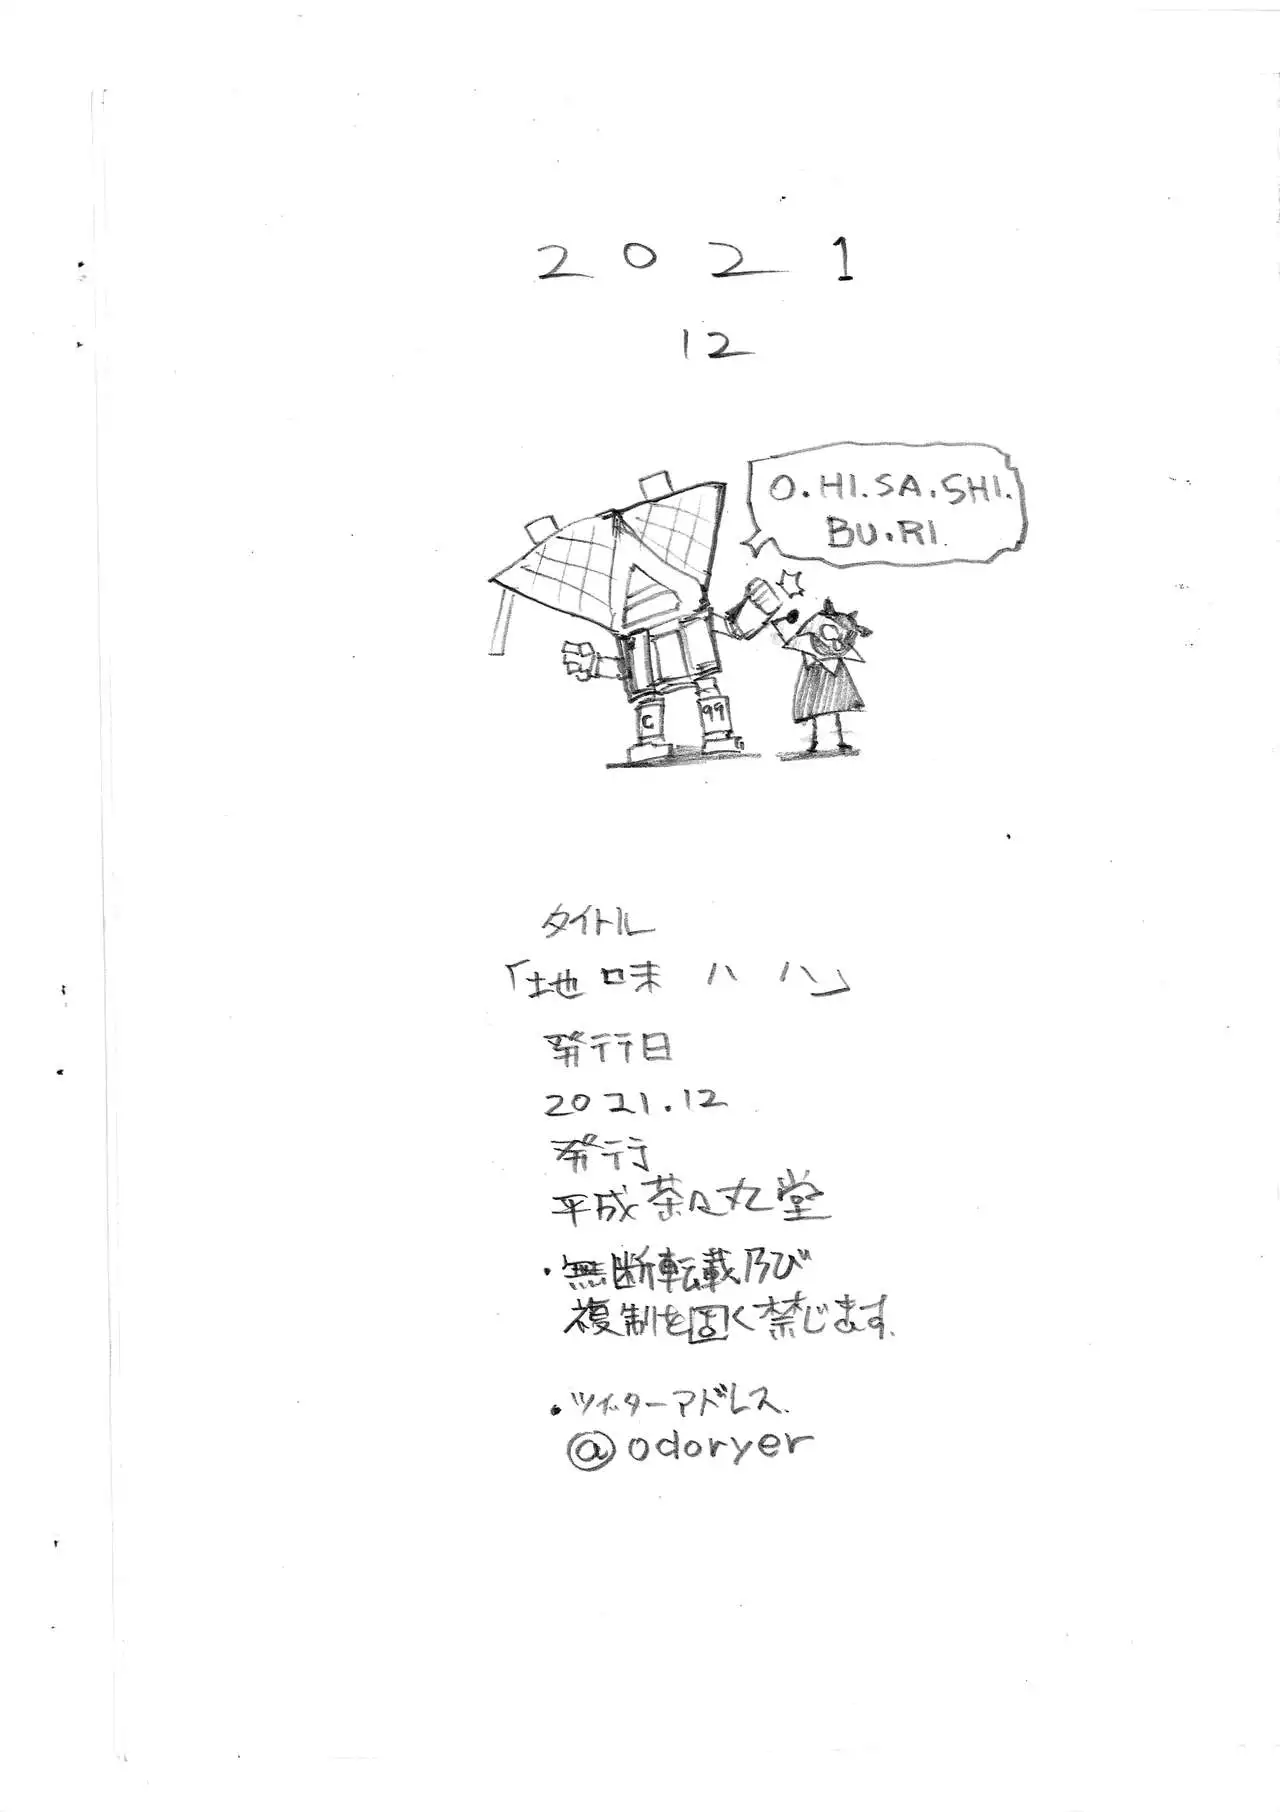 2021
12
O.HI.SA.SHI.
BU.RI.
C 99
タイトル
「地味ハハ」
発行日
2021.12
発行
平成茶々丸堂
・無断転載及び
複製を固く禁じます.
・ツイッターアドレス.
@odoryer